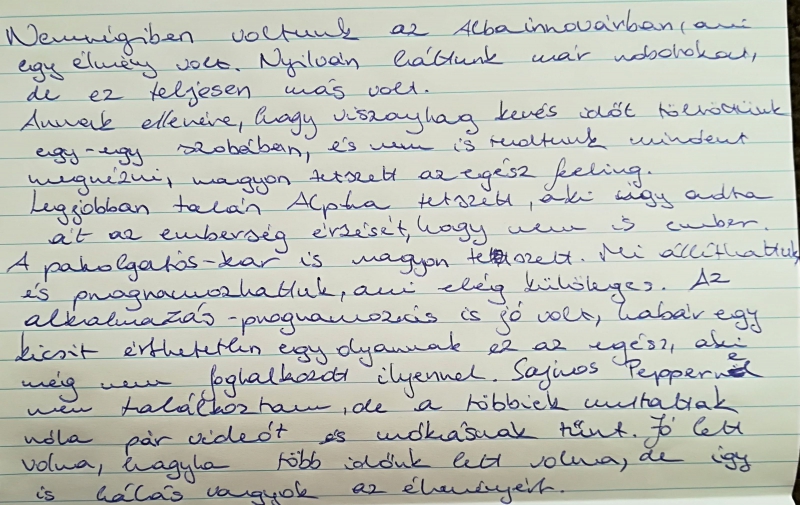 Nemrégiben voltunk az Albainnovárban, ami
egy élmény volt. Nyilván láttunk már robotokat,
de ez teljesen más volt.
Annak ellenére, hogy viszonylag kevés időt töltöttünk
egy-egy szobában, és nem is tudtunk mindent
megnézni, nagyon tetszett az egész feeling.
Legjobban talán Alpha tetszett, aki úgy adta
át az emberség érzését, hogy nem is ember.
A pakolgatós-kar is nagyon tetszett. Mi állíthattuk
és programozhattuk, ami elég különleges. Az
alkalmazás-programozás is jó volt, habár egy
kicsit érthetetlen egy olyannak ez az egész, aki
még nem foglalkozott ilyennel. Sajnos Pepperrel
nem találkoztam, de a többiek mutattak
róla pár videót és mókásnak tűnt. Jó lett
volna, hogyha több időnk lett volna, de így
is hálás vagyok az élményért.